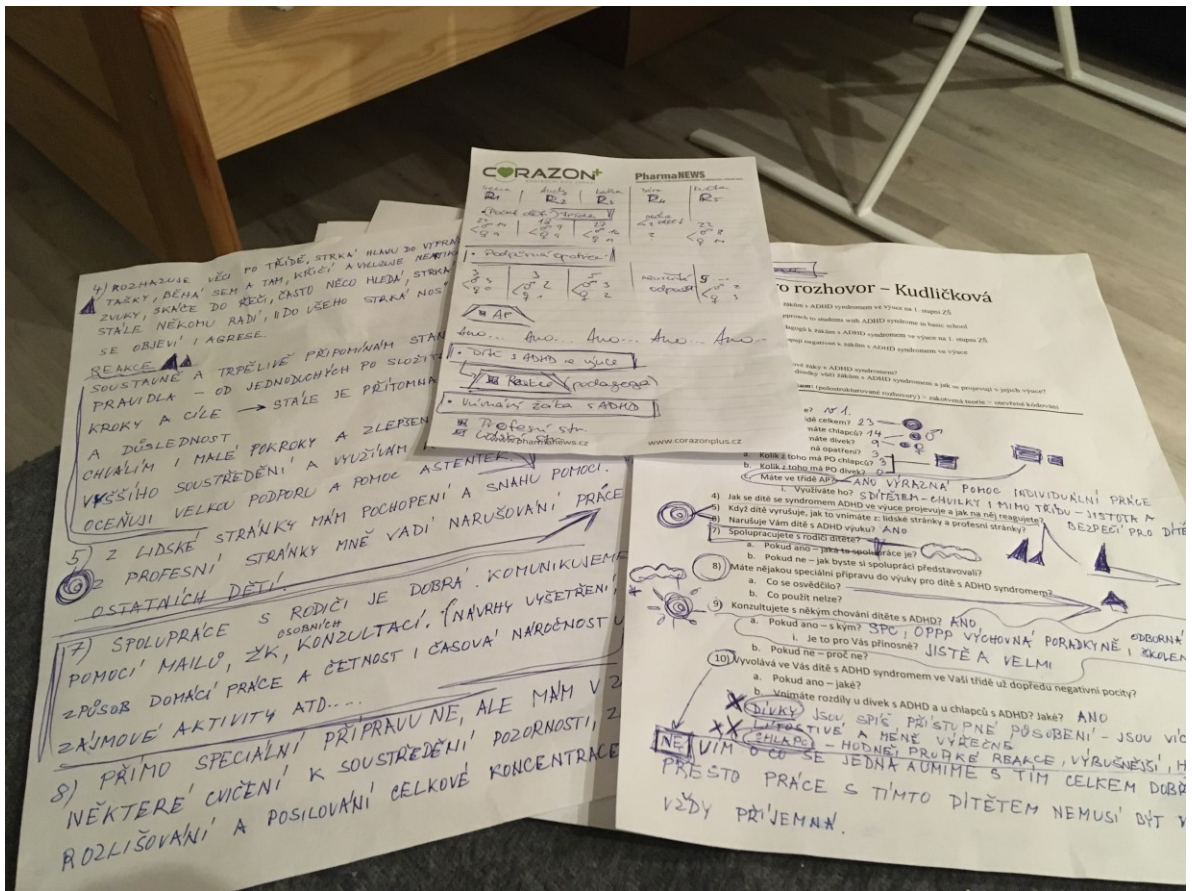 4) ROZHAZUJE VĚCI PO TŘÍDĚ, STRKÁ HLAVU DO
TAŠKY, BĚHÁ SEM A TAM, KŘIČÍ A VYLUZUJE
ZVUKY, SKÁČE DO ŘEČI, ČASTO NĚCO HLEDÁ, STRKÁ
STÁLE NĚKOMU RADÍ, DO VŠEHO STRKÁ NOS
SE OBJEVÍ I AGRESE.
REAKCE
SOUSTAVNĚ A TRPĚLIVĚ PŘIPOMÍNÁM
PRAVIDLA – OD JEDNODUCHÝCH PO
KROKY A CÍLE → STÁLE JE PŘÍTOMNA
A DŮSLEDNOST
CHVÁLÍM I MALÉ POKROKY A
VYŠŠÍHO SOUSTŘEDĚNÍ A VYUŽÍVÁM
OCEŇUJI VELKOU PODPORU A POMOC ASTENTEK.
5) Z LIDSKÉ STRÁNKY MÁM POCHOPENÍ A SNAHU POMOCI.
Z PROFESNÍ STRÁNKY MNĚ VADÍ NARUŠOVÁNÍ PRÁCE
OSTATNÍCH DĚTÍ.
7) SPOLUPRÁCE S RODIČI JE DOBRÁ. KOMUNIKUJEME
POMOCÍ MAILŮ, ŽK, OSOBNÍCH KONZULTACÍ. (NÁVRHY VYŠETŘENÍ,
ZPŮSOB DOMÁCÍ PRÁCE A ČETNOST I ČASOVÁ NÁROČNOST
ZÁJMOVÉ AKTIVITY ATD.....
8) PŘÍMO SPECIÁLNÍ PŘÍPRAVU NE, ALE MÁM V
NĚKTERÉ CVIČENÍ K SOUSTŘEDĚNÍ POZORNOSTI,
ROZLIŠOVÁNÍ A POSILOVÁNÍ CELKOVÉ KONCENTRACE
CORAZON+ PharmaNEWS
R1 R2 R3 R4 R5
Počet dětí třída
• Podpůrná opatření
3 3 5
AP
Ano... Ano... Ano... Ano... Ano...
• Dítě s ADHD ve výuce
Reakce (pedagoga)
• Vnímání žáka s ADHD
Profesní str.
Lidská str.
www.corazonplus.cz
ro rozhovor – Kudličková
žákům s ADHD syndromem ve výuce na 1. stupni ZŠ
approach to students with ADHD syndrome in basic school
k žákům s ADHD syndromem ve výuce na 1. stupni ZŠ
negativní k žákům s ADHD syndromem ve výuce
žáky s ADHD syndromem?
vůči žákům s ADHD syndromem a jak se projevují v jejich výuce?
(polostrukturované rozhovory) > zakotvená teorie > otevřené kódování
1.
celkem? 23
máte chlapců? 14
máte dívek? 9
opatření? 3
a. Kolik z toho má PO chlapců? 3
b. Kolik z toho má PO dívek? 0
c. Máte ve třídě AP? ANO VÝRAZNÁ POMOC INDIVIDUÁLNÍ PRÁCE
i. Využíváte ho? S DÍTĚTEM – CHVILKY I MIMO TŘÍDU – JISTOTA A
BEZPEČÍ PRO
4) Jak se dítě se syndromem ADHD ve výuce projevuje a jak na něj reagujete?
5) Když dítě vyrušuje, jak to vnímáte z: lidské stránky a profesní stránky?
6) Narušuje Vám dítě s ADHD výuku? ANO
7) Spolupracujete s rodiči dítěte?
a. Pokud ano – jaká to spolupráce je?
b. Pokud ne – jak byste si spolupráci představovali?
8) Máte nějakou speciální přípravu do výuky pro dítě s ADHD syndromem?
a. Co se osvědčilo?
b. Co použít nelze?
9) Konzultujete s někým chování dítěte s ADHD? ANO
a. Pokud ano – s kým? SPC, OPPP VÝCHOVNÁ PORADKYNĚ ODBORNÁ
i. Je to pro Vás přínosné? JISTĚ A VELMI
b. Pokud ne – proč ne?
10) Vyvolává ve Vás dítě s ADHD syndromem ve Vaší třídě už dopředu negativní pocity?
a. Pokud ano – jaké?
b. Vnímáte rozdíly u dívek s ADHD a u chlapců s ADHD? Jaké? ANO
DÍVKY JSOU SPÍŠ PŘÍSTUPNÉ PŮSOBENÍ – JSOU
LÍTOSTIVÉ A MÉNĚ VÝŘEČNÉ
CHLAPCI – HODNĚ PRUDKÉ REAKCE, VÝBUŠNĚJŠÍ,
NE VÍM O CO SE JEDNÁ A UMÍME S TÍM CELKEM
PŘESTO PRÁCE S TÍMTO DÍTĚTEM NEMUSÍ BÝT
VŽDY PŘÍJEMNÁ.